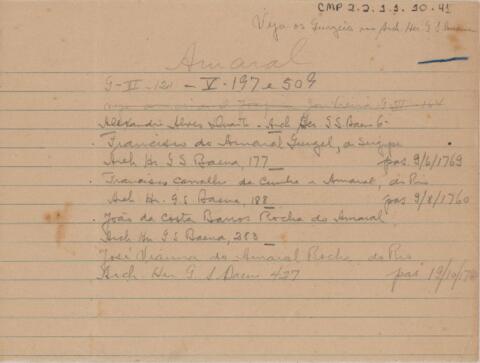 CMP 2.2.1.1.30.41
Veja os Gurgeis no Arch. Her. G S Baena
Amaral
G-II-121 - V-197 e 509
Alexandre Alves Duarte - Arch Her G S Baena 6-
. Francisco do Amaral Gurgel, de Sergipe
Arch Her. G S Baena, 177 pas. 9/6/1769
. Francisco Carvalho da Cunha e Amaral, do Rio
Arch Her. G. S Baena, 188 pas 9/8/1760
. João da Costa Barros Rocha do Amaral
Arch Her G S Baena, 283
José Vianna do Amaral Rocha, do Rio
Arch. Her G S Baena 427 pas 19/10/